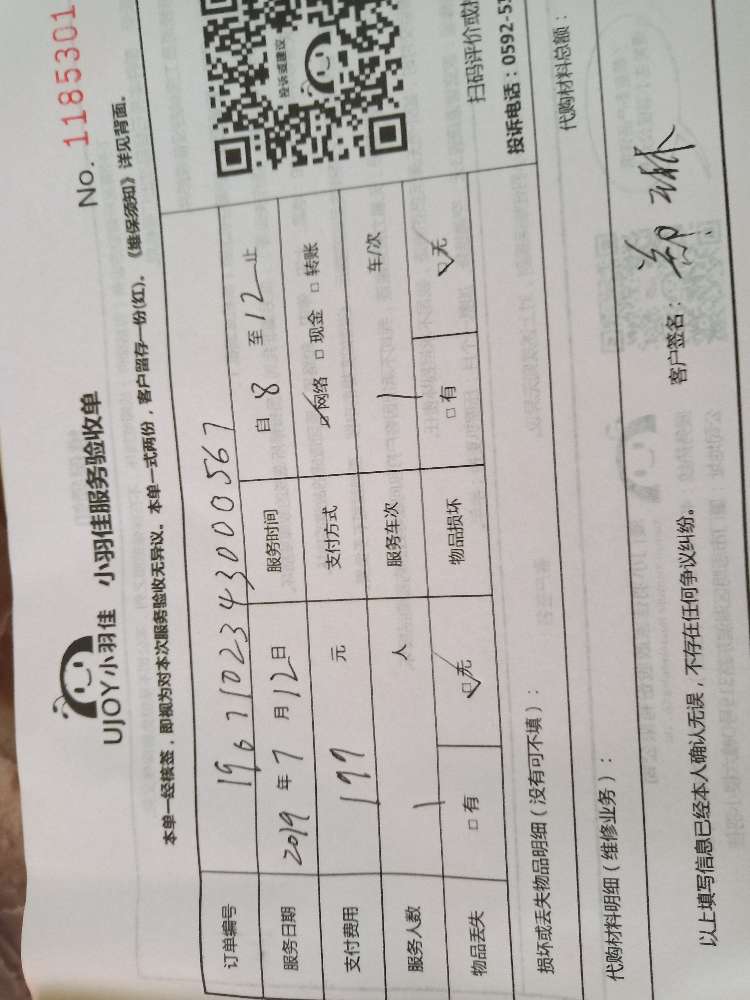 UJOY小羽佳 小羽佳服务验收单
No. 1185301
本单一经核签，即视为对本次服务验收无异议。本单一式两份，客户留存一份(红)。《维保须知》详见背面。
订单编号 1967102343000567
服务日期 2019 年 7 月 12 日 服务时间 自 8 至 12 止
支付费用 199 元 支付方式 ☑网络 □现金 □转账
服务人数 1 人 服务车次 1 车/次
物品丢失 □有 ☑无 物品损坏 □有 ☑无
投诉或建议
扫码评价或投
投诉电话：0592-51
损坏或丢失物品明细（没有可不填）：
代购材料明细（维修业务）： 代购材料总额：
以上填写信息已经本人确认无误，不存在任何争议纠纷。 客户签名：郑琳